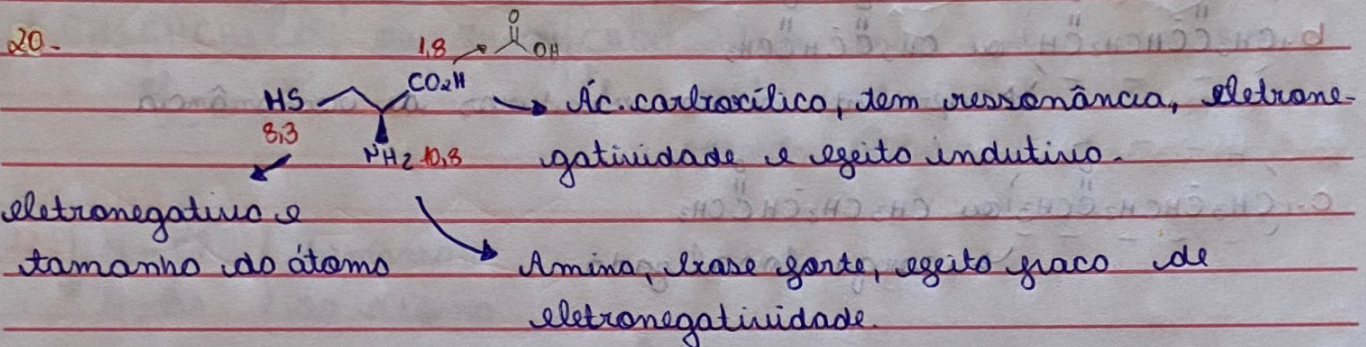 20-
1,8 → O OH
HS CO2H → Ác. carboxílico, tem ressonância, eletrone-
8,3 NH2 10,8 gatividade e efeito indutivo.
eletronegativo e
tamanho do átomo → Amina, base forte, efeito fraco de
eletronegatividade.